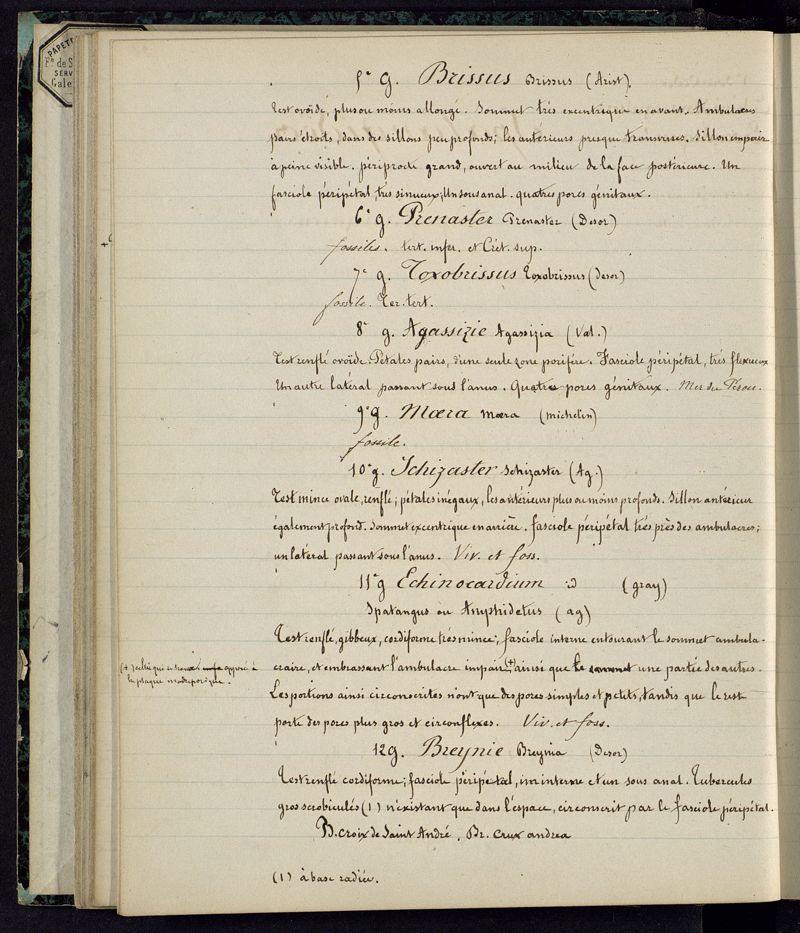 PAPET
Fe de S
SERV
Cale
5e g. Brissus Brissus (Arist).
Test ovoïde, plus ou moins allongé. Sommet très excentrique en avant. Ambulacres
pairs étroits, dans des sillons peu profonds; les antérieurs presque transverses. Sillon impair
à peine visible. périprocte grand, ouvert au milieu de la face postérieure. Un
fasciole péripétal, très sinueux; Un sous anal. quatres pores génitaux.
6e g. Prenaster Prenaster (Desor)
fossiles. tert. infer. et Crét. sup.
7e g. Toxobrissus Toxobrissus (Desor)
fossile. Ter. tert.
8e g. Agassizie Agassizia (Val.)
Test renflé ovoïde. Pétales pairs, d'une seule zone porifère. Fasciole péripétal, très flexueux
Un autre latéral passant sous l'anus. Quatre pores génitaux. Mer du Pérou.
9e g. Mœra Mœra (michelin)
fossile.
10e g. Schizaster Schizaster (Ag.)
Test mince ovale, renflé; pétales inégaux, les antérieurs plus ou moins profonds. Sillon antérieur
également profond. Sommet excentrique en arrière. fasciole péripétal très près des ambulacres;
un latéral passant sous l'anus. Viv. et foss.
11e g Echinocardium id (gray)
Spatangus ou Amphidetus (ag)
Test renflé, gibbeux, cordiforme très mince; fasciole interne entourant le sommet ambula-
craire, et embrassant l'ambulacre impair (+) ainsi que le sommet une partie des autres.
(+) celui qui se trouve opposé à
la plaque madréporique.
Les portions ainsi circonscrites n'ont que des pores simples et petits, tandis que le rest
porte des pores plus gros et circonflexes. Viv. et foss.
12 g. Breynie Breynia (Desor)
Test renflé cordiforme; fasciole péripétal, un interne et un sous anal. Tubercules
gros scrobiculés (1) n'existant que dans l'espace, circonscrit par le fasciole péripétal.
B. croix de Saint André. Br. Crux andrea
(1) à base radiée.